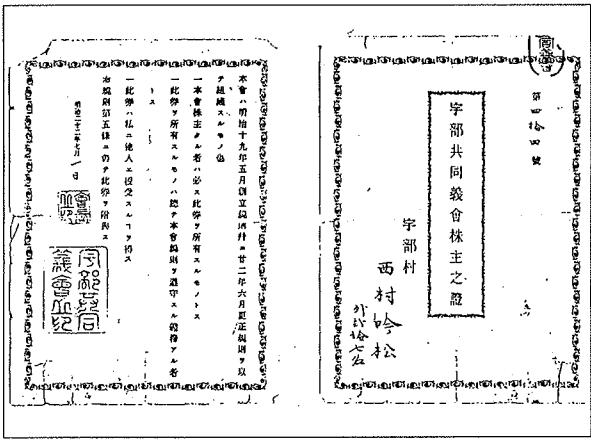 第四拾四號
宇部共同義會株主之證
宇部村
西村吟松
外弐拾七名
本會ハ明治十九年五月創立繩酒幷ニ廿二年六月更正規則ヲ以
テ組織スルモノ也
一本會株主タル者ハ必ス此券ヲ所有スルモノトス
一此券ヲ所有スルモノハ總テ本會規則ヲ遵守スル義務アル者
トス
一此券ハ私ニ他人ニ授受スルヿヲ得ス
右規則第五條ニ仍テ此券ヲ附與ス
明治二十二年七月一日
宇部共同
義會之印